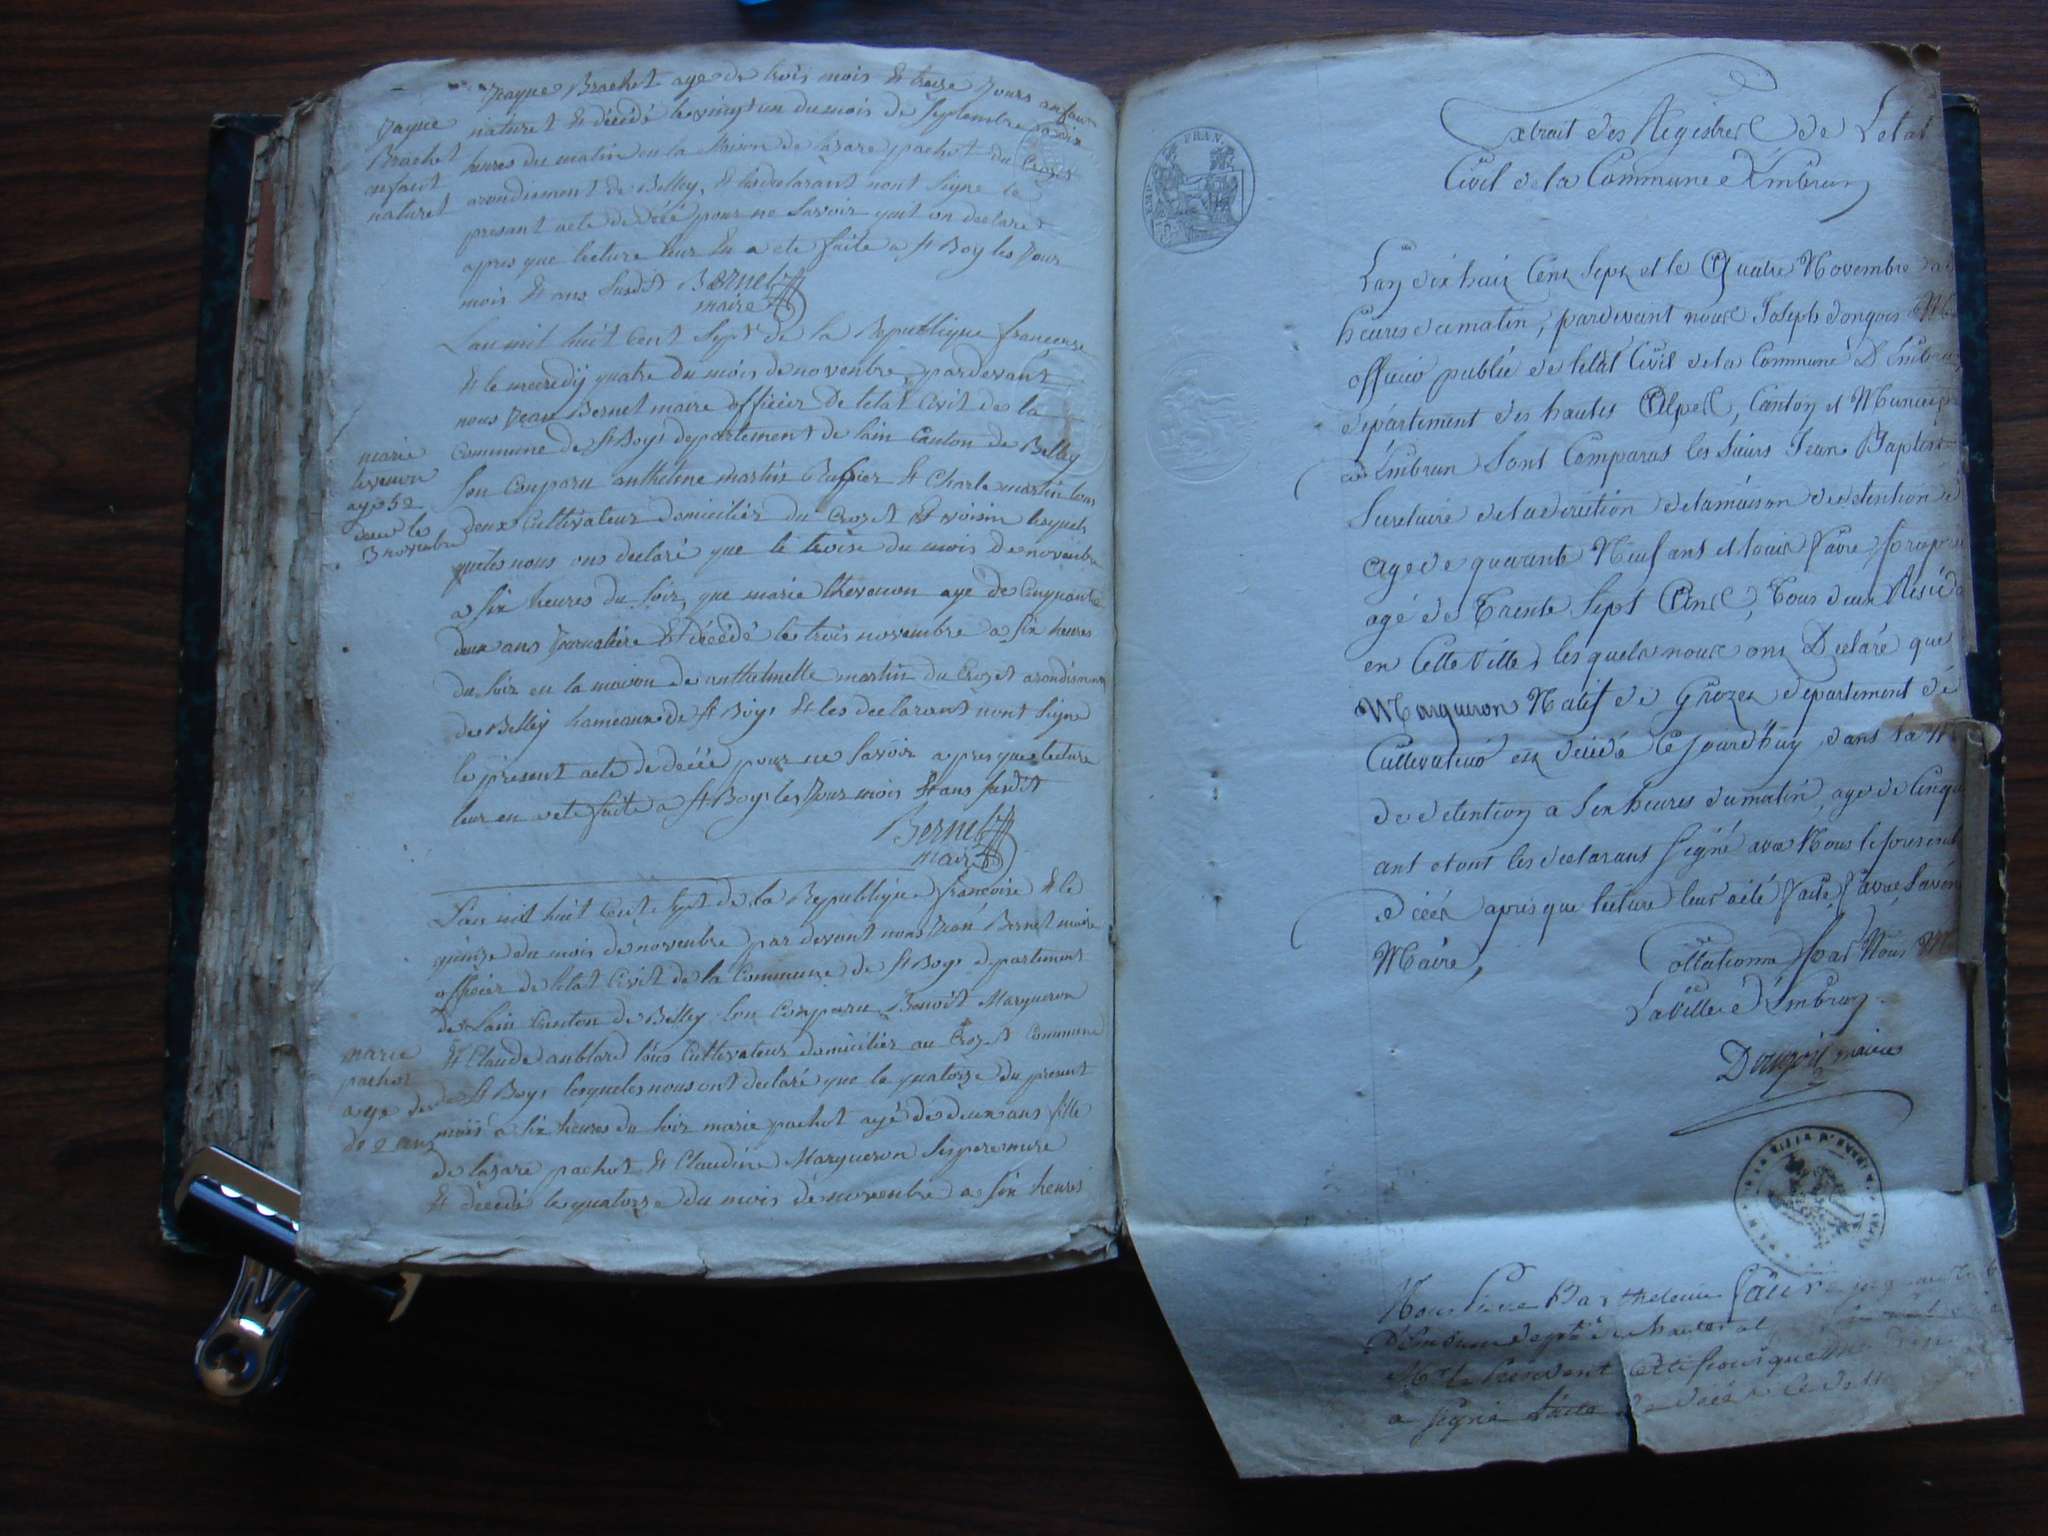 Jayque Brachet aye de trois mois Et treise Jours anfant
naturel Et décédé le vingt un du mois de Septembre a dix
heures du matin en la Maison de lasare pachot du Crozet
arondisment de Belley, Et les declarant nont Signe le
present acte de décé pour ne Savoir quit on declare
apres que lecture leur En a ete faite a St Boy les Jour
mois Et ans Susdit Bernet
maire
Jayque
Brachet
anfant
naturel
Lan mil huit Cent Sept de la Republique francoise
Et le mercredy quatre du mois de novenbre pardevant
nous Jean Bernet maire officier De letat Civil de la
Commune de St Boys departement de lain Canton de Belley
Son Conparu anthelme martin Ruffier Et Charle martin tous
deux Cultivateur domiciliés du Crozet Et voisin lesquels
quels nous ons declaré que le troise du mois de novenbre
a six heures du soir, que marie thevenon aye de Cinquante
deux ans Journaliere Et décédé le trois novenbre a six heures
du soir en la maison de anthelmette martin du Crozet arondisment
de Belley hameaux de St Boys Et les declarant nont Signe
le present acte de décé pour ne Savoir apres que lecture
leur en a ete faite a St Boys les Jour mois Et ans susdit
Bernet
maire
marie
tevenon
aye 52
décé le
3 novenbre
Lan mil huit Cent Sept de la Republique francoise Et le
quinse du mois de novenbre par devant nous Jean Bernet maire
officier de letat Civil de la Commune de St Boys departement
de Lain Canton de Belley Son Conparu Benoit Margueron
Et Claude anblard tous Cultivateur domiciliés au Crozet Commune
de St Boys lesquels nous ont declaré que le quatorze du present
mois a six heures du soir marie pachot ayé de deux ans fille
de lasare pachot Et Claudine Margueron Ses pere mere
Et décédé le quatorse du mois de novenbre a six heures
marie
pachot
aye de
de 2 ans
Extrait des Registres de L'etat
Civil de la Commune d'Embrun
Lan dix huit Cent Sept et le Quatre Novembre
heures du matin, pardevant nous Joseph Dongois
officier public de l'etat Civil de la Commune D'Embrun
departement des hautes Alpes, Canton et Municip
d'Embrun Sont Comparus les Sieurs Jean Baptiste
Secretaire de la direction de la maison de detention de
agé de quarante Neuf ans et Louis Faure
agé de Trente Sept Ans, Tous deux Resid
en Cette Ville, les quels nous ont Declaré que
Margueron Natif de Grozet departement de
Cultivateur est décédé Ce Jourd'huy dans la M
de detention a Six heures du matin, age de Cinqu
ant et ont les declarant Signé avec Nous le present
décés apres que lecture leur a été faite
Maire,
Collationné par Nous M
La Ville d'Embrun
Dongois maire
Nous Pierre Barthelemi Faure
D'Embrun
Mr le President Certifions que
a Signé l'acte de décé